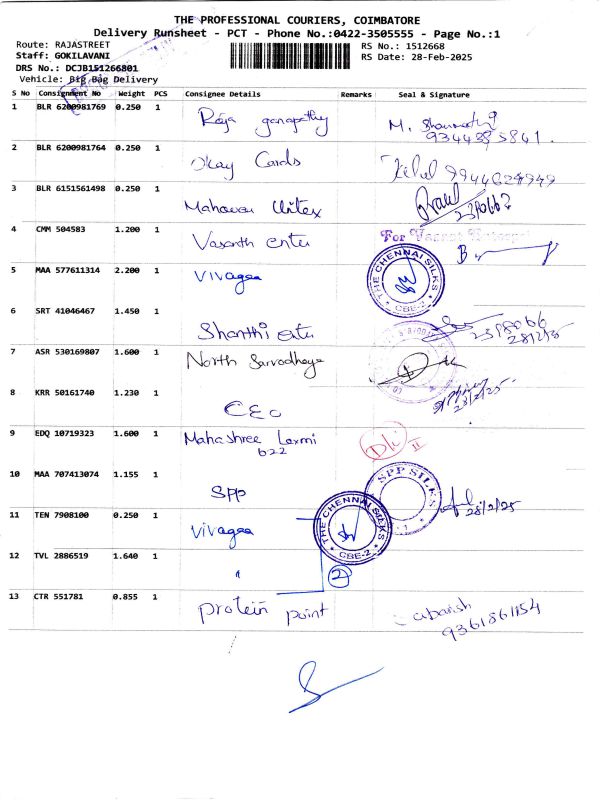 THE PROFESSIONAL COURIERS, COIMBATORE
Delivery Runsheet - PCT - Phone No.:0422-3505555 - Page No.:1
Route: RAJASTREET
RS No.: 1512668
Staff: GOKILAVANI
RS Date: 28-Feb-2025
DRS No.: DCJB151266801
Vehicle: Big Bag Delivery
S No Consignment No Weight PCS Consignee Details Remarks Seal & Signature
1 BLR 6200981769 0.250 1 Raja ganapathy M.
9344383841.
2 BLR 6200981764 0.250 1 Okay Cards 9944624949
3 BLR 6151561498 0.250 1 Mahaveer
4 CMM 504583 1.200 1 Vasanth enter For
5 MAA 577611314 2.200 1 Vivagaa THE CHENNAI SILKS CBE-2
6 SRT 41046467 1.450 1 Shanthi enter
28/2/25
7 ASR 530169807 1.600 1 North Sarvodhaya
8 KRR 50161740 1.230 1 CEO
9 EDQ 10719323 1.600 1 Mahashree Laxmi
622
10 MAA 707413074 1.155 1 SPP SPP SILKS 28/2/25
11 TEN 7908100 0.250 1 Vivagaa THE CHENNAI SILKS CBE-2
12 TVL 2886519 1.640 1 " 2
13 CTR 551781 0.855 1 Protein point
9361861154